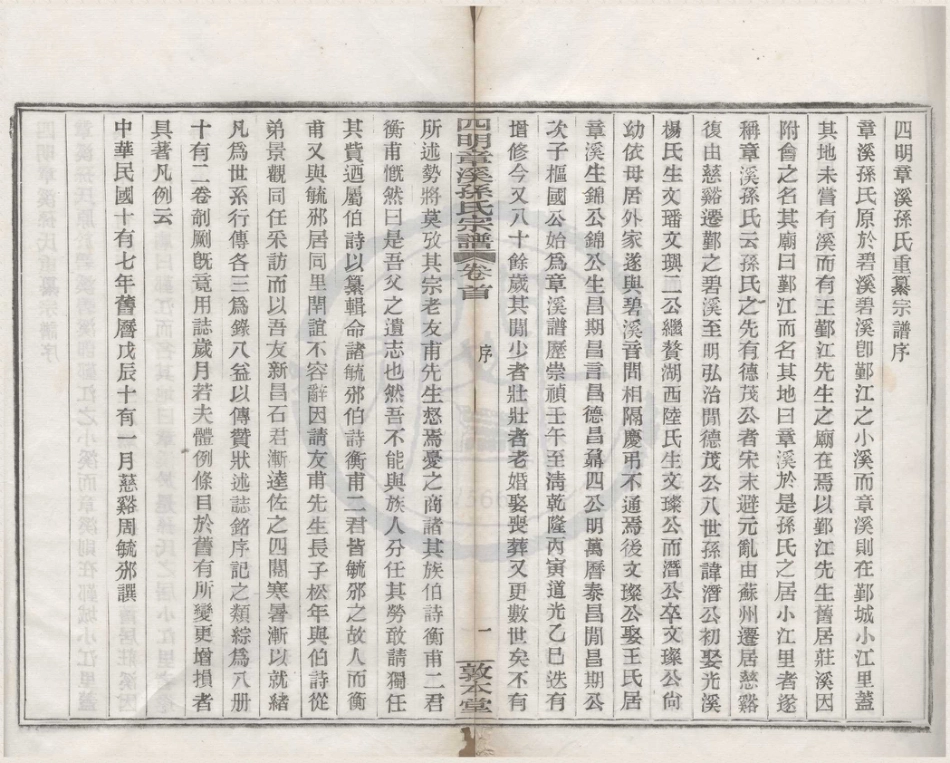 四明章溪孫氏重纂宗譜序
章溪孫氏原於碧溪碧溪卽鄞江之小溪而章溪則在鄞城小江里蓋
其地未嘗有溪而有王鄞江先生之廟在焉以鄞江先生舊居莊溪因
附會之名其廟曰鄞江而名其地曰章溪於是孫氏之居小江里者遂
稱章溪孫氏云孫氏之先有德茂公者宋末避元亂由蘇州遷居慈谿
復由慈谿遷鄞之碧溪至明弘治閒德茂公八世孫諱潛公初娶光溪
楊氏生文璠文璵二公繼贅湖西陸氏生文璨公而潛公卒文璨公尙
幼依母居外家遂與碧溪音問相隔慶弔不通焉後文璨公娶王氏居
章溪生錦公錦公生昌期昌言昌德昌鼐四公明萬曆泰昌閒昌期公
次子樞國公始爲章溪譜歷崇禎壬午至淸乾隆丙寅道光乙巳迭有
增修今又八十餘歲其閒少者壯壯者老婚娶喪葬又更數世矣不有
四明章溪孫氏宗譜 卷首 序 一 敦本堂
所述勢將莫攷其宗老友甫先生怒焉憂之商諸其族伯詩衡甫二君
衡甫慨然曰是吾父之遺志也然吾不能與族人分任其勞敢請獨任
其費迺屬伯詩以纂輯命諸毓邠伯詩衡甫二君皆毓邠之故人而衡
甫又與毓邠居同里閈誼不容辭因請友甫先生長子松年與伯詩從
弟景觀同任采訪而以吾友新昌石君漸逵佐之四閱寒暑漸以就緒
凡爲世系行傳各三爲錄八益以傳贊狀述誌銘序記之類綜爲八册
十有二卷剞劂旣竟用誌歲月若夫體例條目於舊有所變更增損者
具著凡例云
中華民國十有七年舊曆戊辰十有一月慈谿周毓邠譔